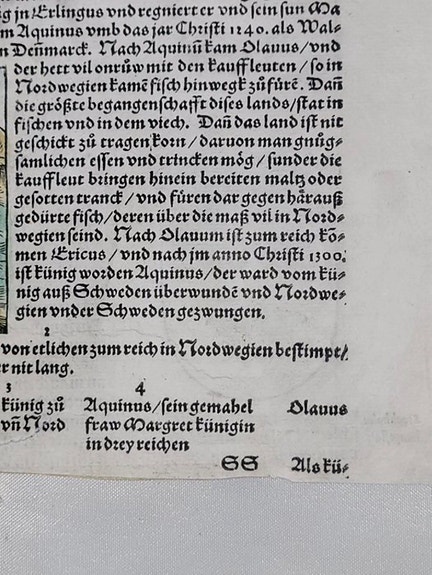 g jn Erlingus vnd regniert er vnd sein sun Ma
m Aquinus vmb das jar Christi 1240. als Wal⸗
n Denmarck. Nach Aquinū kam Olauus/vnd
der hett vil onrůw mit den kauffleuten/so in
Nordwegien kamē fisch hinwegk zůfürē. Dañ
die größte begangenschafft dises lands/stat in
fischen vnd in dem viech. Dañ das land ist nit
geschickt zů tragen korn/daruon man gnůg⸗
samlichen essen vnd trincken mög/sunder die
kauffleut bringen hinein bereiten maltz oder
gesotten tranck/vnd fůren dar gegen härauß
gedürte fisch/deren über die maß vil in Nord⸗
wegien seind. Nach Olauum ist zum reich kō⸗
men Ericus/vnd nach jm anno Christi 1300.
ist künig worden Aquinus/der ward vom kü⸗
nig auß Schweden überwundē vnd Nordwe⸗
gien vnder Schweden gezwungen.
2
von etlichen zum reich in Nordwegien bestimpt/
er nit lang.
3 4
künig zů Aquinus/sein gemahel Olauus
vñ Nord fraw Margret künigin
in drey reichen
SS Als kü⸗